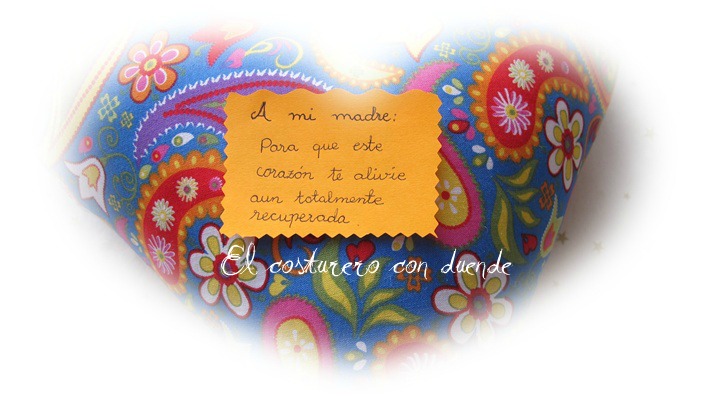 A mi madre:
Para que este
corazón te alivie
aun totalmente
recuperada.
El costurero con duende